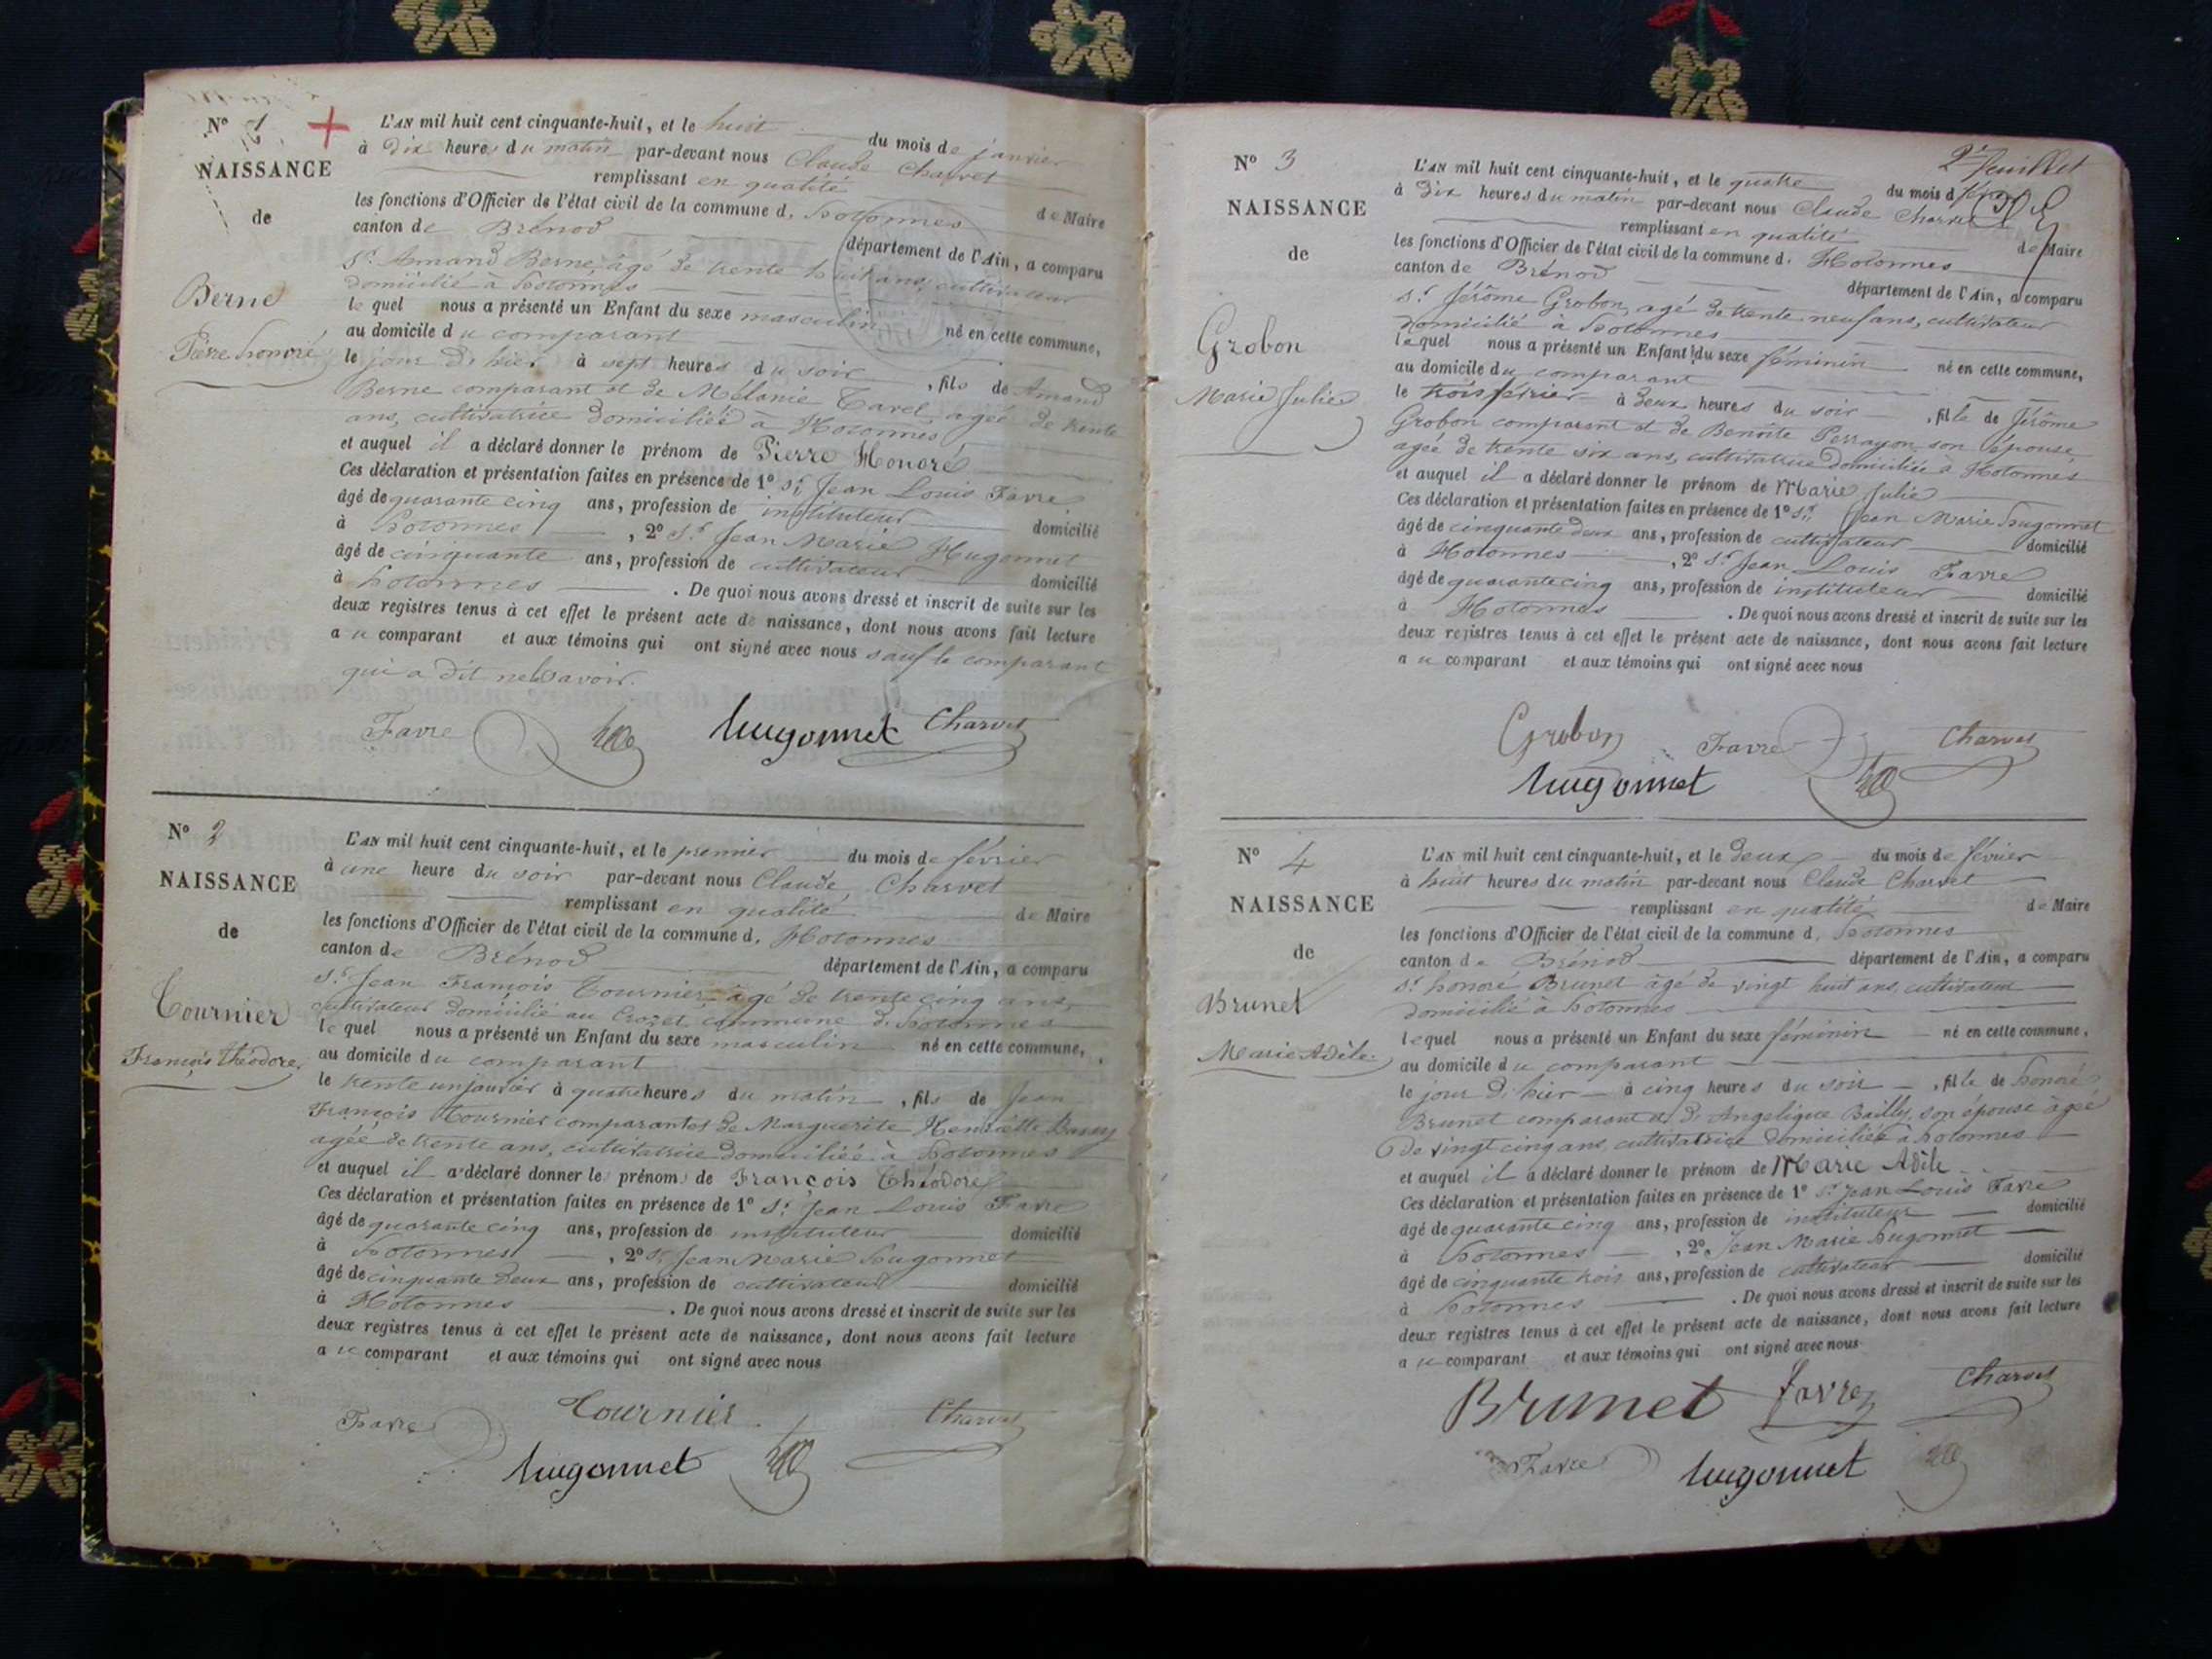 N° 1
NAISSANCE
de
Berne
Pierre honoré
L'AN mil huit cent cinquante-huit, et le huit du mois de janvier
à dix heures du matin par-devant nous Claude Charvet
remplissant en qualité de Maire
les fonctions d'Officier de l'état civil de la commune d. hotonnes
canton de Brénod département de l'Ain, a comparu
Sr. Amand Berne, âgé de trente huit ans, cultivateur
domicilié à hotonnes
lequel nous a présenté un Enfant du sexe masculin né en cette commune,
au domicile du comparant
le jour d'hier à sept heures du soir, fils de Amand
Berne comparant et de Mélanie Tavel, agée de trente
ans, cultivatrice domiciliée à Hotonnes
et auquel il a déclaré donner le prénom de Pierre Honoré
Ces déclaration et présentation faites en présence de 1° Sr. Jean Louis Favre
âgé de quarante cinq ans, profession de instituteur domicilié
à hotonnes, 2° Sr. Jean Marie Hugonnet
âgé de cinquante ans, profession de cultivateur domicilié
à hotonnes. De quoi nous avons dressé et inscrit de suite sur les
deux registres tenus à cet effet le présent acte de naissance, dont nous avons fait lecture
au comparant et aux témoins qui ont signé avec nous sauf le comparant
qui a dit ne le savoir.
Favre hugonnet Charvet
N° 2
NAISSANCE
de
Tournier
François théodore
L'AN mil huit cent cinquante-huit, et le premier du mois de février
à une heure du soir par-devant nous Claude Charvet
remplissant en qualité de Maire
les fonctions d'Officier de l'état civil de la commune d. Hotonnes
canton de Brénod département de l'Ain, a comparu
Sr. Jean François Tournier, âgé de trente cinq ans,
cultivateur domicilié au Crozet commune d. hotonnes
lequel nous a présenté un Enfant du sexe masculin né en cette commune,
au domicile du comparant
le trente un janvier à quatre heures du matin, fils de Jean
François Tournier comparant et de Marguerite Henriette
agée de trente ans, cultivatrice domiciliée à hotonnes
et auquel il a déclaré donner le prénom de François Théodore
Ces déclaration et présentation faites en présence de 1° Sr. Jean Louis Favre
âgé de quarante cinq ans, profession de instituteur domicilié
à hotonnes, 2° Sr. Jean Marie hugonnet
âgé de cinquante deux ans, profession de cultivateur domicilié
à Hotonnes. De quoi nous avons dressé et inscrit de suite sur les
deux registres tenus à cet effet le présent acte de naissance, dont nous avons fait lecture
au comparant et aux témoins qui ont signé avec nous
Favre Tournier Charvet
hugonnet
2e feuillet
N° 3
NAISSANCE
de
Grobon
Marie Julie
L'AN mil huit cent cinquante-huit, et le quatre du mois d
à dix heures du matin par-devant nous Claude Charvet
remplissant en qualité de Maire
les fonctions d'Officier de l'état civil de la commune d. Hotonnes
canton de Brénod département de l'Ain, a comparu
Sr. Jérôme Grobon, agé de trente neuf ans, cultivateur
domicilié à hotonnes
lequel nous a présenté un Enfant du sexe féminin né en cette commune,
au domicile du comparant
le trois février à deux heures du soir, fille de Jérôme
Grobon comparant et de Benoîte Perrayon son épouse,
agée de trente six ans, cultivatrice domiciliée à Hotonnes
et auquel il a déclaré donner le prénom de Marie Julie
Ces déclaration et présentation faites en présence de 1° Sr. Jean Marie hugonnet
âgé de cinquante deux ans, profession de cultivateur domicilié
à Hotonnes, 2° Sr. Jean Louis Favre
âgé de quarante cinq ans, profession de instituteur domicilié
à Hotonnes. De quoi nous avons dressé et inscrit de suite sur les
deux registres tenus à cet effet le présent acte de naissance, dont nous avons fait lecture
au comparant et aux témoins qui ont signé avec nous
Grobon Favre Charvet
hugonnet
N° 4
NAISSANCE
de
Brunet
Marie Adèle
L'AN mil huit cent cinquante-huit, et le deux du mois de février
à huit heures du matin par-devant nous Claude Charvet
remplissant en qualité de Maire
les fonctions d'Officier de l'état civil de la commune d. hotonnes
canton de Brénod département de l'Ain, a comparu
Sr. honoré Brunet âgé de vingt huit ans, cultivateur
domicilié à hotonnes
lequel nous a présenté un Enfant du sexe féminin né en cette commune,
au domicile du comparant
le jour d'hier à cinq heures du soir, fille de honoré
Brunet comparant et d'Angelique Bailly, son épouse âgée
de vingt cinq ans, cultivatrice domiciliée à hotonnes
et auquel il a déclaré donner le prénom de Marie Adèle
Ces déclaration et présentation faites en présence de 1° Sr. Jean Louis Favre
âgé de quarante cinq ans, profession de instituteur domicilié
à hotonnes, 2° Jean Marie hugonnet
âgé de cinquante trois ans, profession de cultivateur domicilié
à hotonnes. De quoi nous avons dressé et inscrit de suite sur les
deux registres tenus à cet effet le présent acte de naissance, dont nous avons fait lecture
au comparant et aux témoins qui ont signé avec nous
Brunet favre Charvet
Favre hugonnet